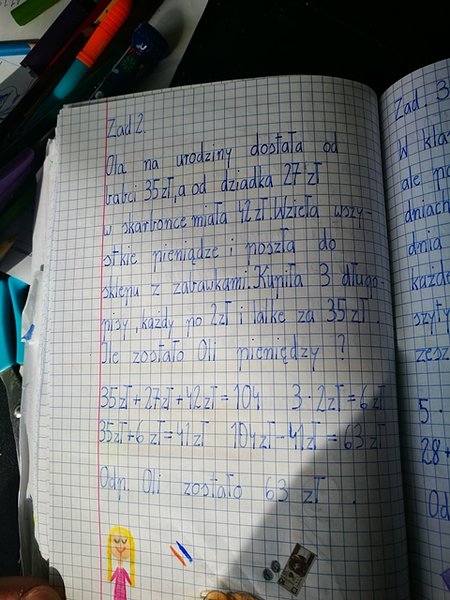 Zad 2.
Ola na urodziny dostała od
babci 35 zł, a od dziadka 27 zł
w skarbonce miała 42 zł. Wzięła wszy-
stkie pieniądze i poszła do
sklepu z zabawkami. Kupiła 3 długo-
pisy, każdy po 2 zł i lalkę za 35 zł.
Ile zostało Oli pieniędzy?
35 zł + 27 zł + 42 zł = 104 3 · 2 zł = 6 zł
35 zł + 6 zł = 41 zł 104 zł - 41 zł = 63 zł
Odp. Oli zostało 63 zł.
Zad. 3
W kla
ale po
dniach
dnia
każde
szyty
zesz
5 ·
28 +
Od